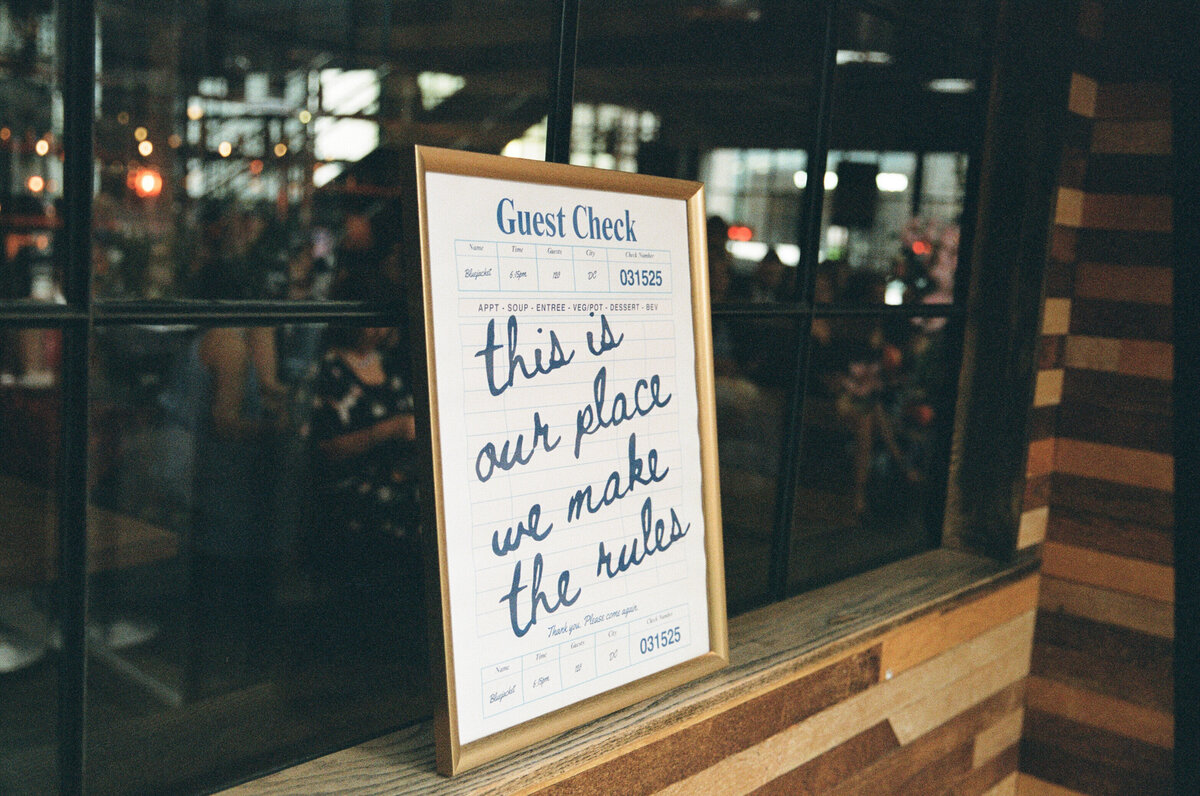 Guest Check
Name Time Guests City Check Number
Bluejacket 5:15pm 129 DC 031525
APPT - SOUP - ENTREE - VEG/POT - DESSERT - BEV
this is
our place
we make
the rules
Thank you. Please come again.
Name Time Guests City Check Number
Bluejacket 5:15pm DC 031525